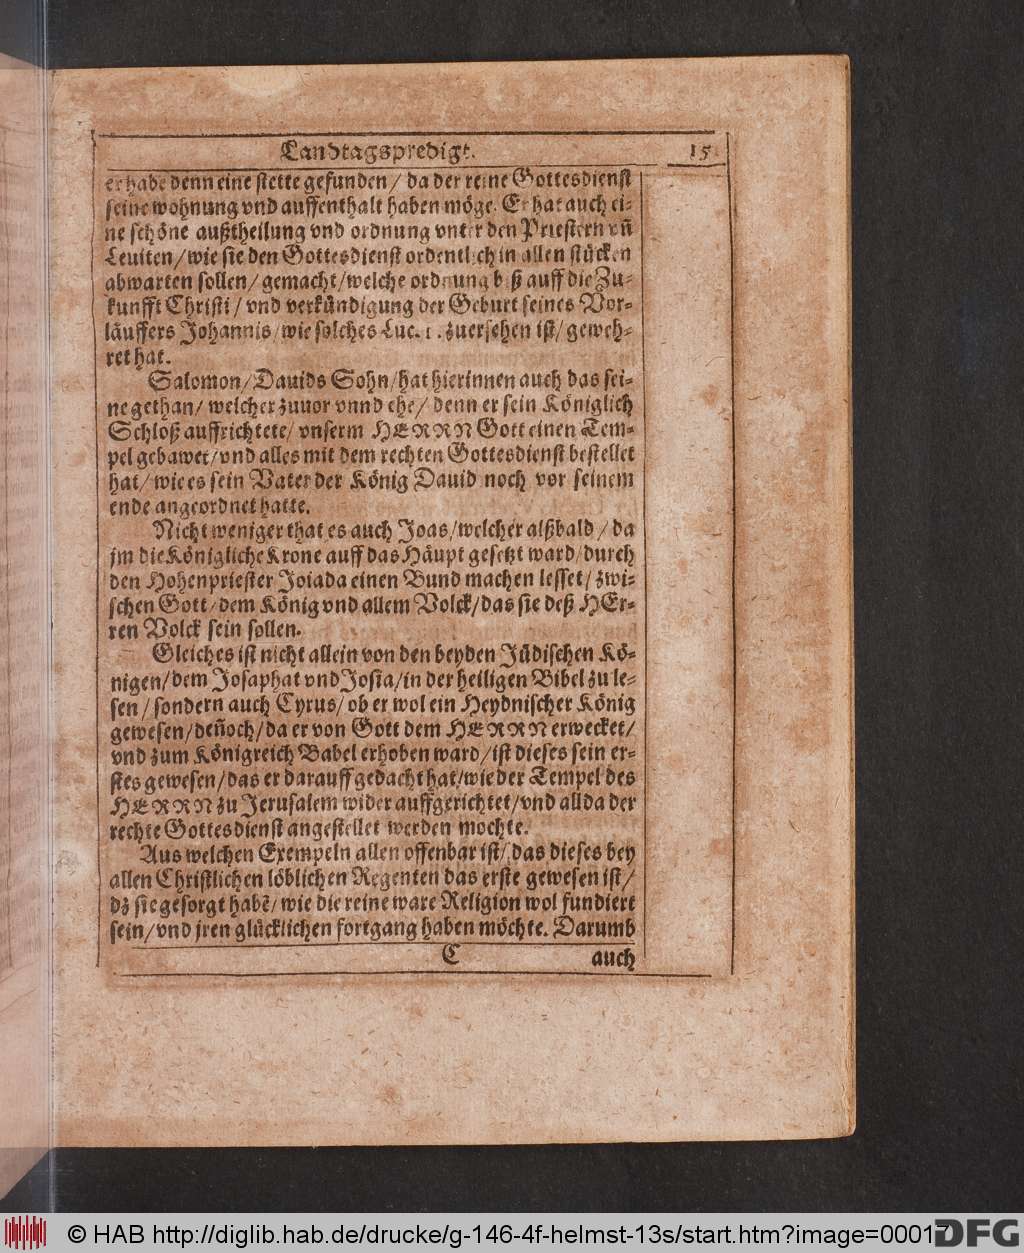 Landtagspredigt. 15
er habe denn eine stette gefunden / da der reine Gottesdienst
seine wohnung vnd auffenthalt haben möge. Er hat auch ei-
ne schöne außtheilung vnd ordnung vnter den Priestern vñ
Leuiten / wie sie den Gottesdienst ordentlich in allen stücken
abwarten sollen / gemacht / welche ordnung biß auff die Zu-
kunfft Christi / vnd verkündigung der Geburt seines Vor-
läuffers Johannis / wie solches Luc. 1. zuersehen ist / geweh-
ret hat.
Salomon / Dauids Sohn / hat hierinnen auch das sei-
ne gethan / welcher zuuor vnnd ehe / denn er sein Königlich
Schloß auffrichtete / vnserm HERRN Gott einen Tem-
pel gebawet / vnd alles mit dem rechten Gottesdienst bestellet
hat / wie es sein Vater der König Dauid noch vor seinem
ende angeordnet hatte.
Nicht weniger that es auch Joas / welcher alßbald / da
jm die Königliche Krone auff das Häupt gesetzt ward / durch
den Hohenpriester Joiada einen Bund machen lesset / zwi-
schen Gott / dem König vnd allem Volck / das sie deß HEr-
ren Volck sein sollen.
Gleiches ist nicht allein von den beyden Jüdischen Kö-
nigen / dem Josaphat vnd Josia / in der heiligen Bibel zu le-
sen / sondern auch Cyrus / ob er wol ein Heydnischer König
gewesen / deñoch / da er von Gott dem HERRN erwecket /
vnd zum Königreich Babel erhoben ward / ist dieses sein er-
stes gewesen / das er darauff gedacht hat / wie der Tempel des
HERRN zu Jerusalem wider auffgerichtet / vnd allda der
rechte Gottesdienst angestellet werden mochte.
Aus welchen Exempeln allen offenbar ist / das dieses bey
allen Christlichen löblichen Regenten das erste gewesen ist /
dz sie gesorgt habẽ / wie die reine ware Religion wol fundiert
sein / vnd jren glücklichen fortgang haben möchte. Darumb
C auch
© HAB http://diglib.hab.de/drucke/g-146-4f-helmst-13s/start.htm?image=00017
DFG